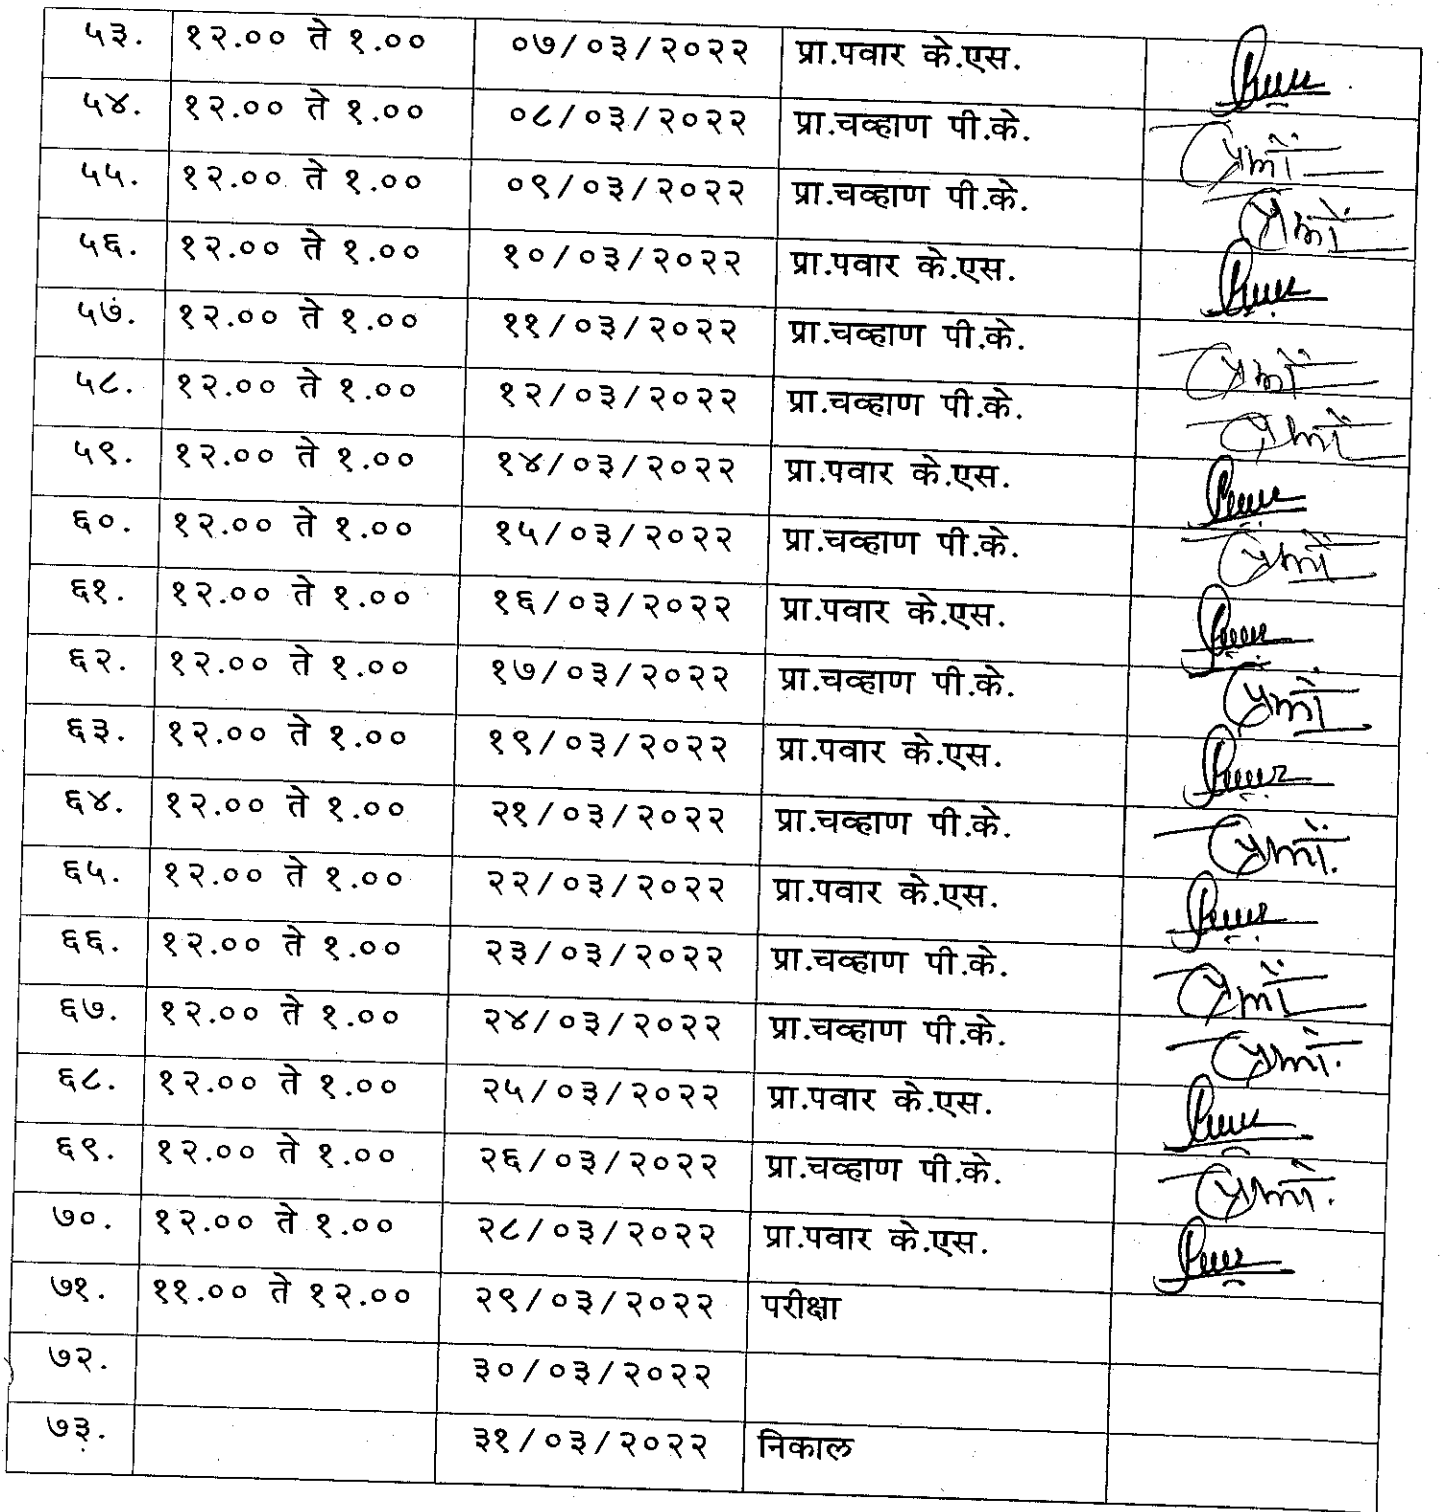 ५३. १२.०० ते १.०० ०७/०३/२०२२ प्रा.पवार के.एस.
५४. १२.०० ते १.०० ०८/०३/२०२२ प्रा.चव्हाण पी.के.
५५. १२.०० ते १.०० ०९/०३/२०२२ प्रा.चव्हाण पी.के.
५६. १२.०० ते १.०० १०/०३/२०२२ प्रा.पवार के.एस.
५७. १२.०० ते १.०० ११/०३/२०२२ प्रा.चव्हाण पी.के.
५८. १२.०० ते १.०० १२/०३/२०२२ प्रा.चव्हाण पी.के.
५९. १२.०० ते १.०० १४/०३/२०२२ प्रा.पवार के.एस.
६०. १२.०० ते १.०० १५/०३/२०२२ प्रा.चव्हाण पी.के.
६१. १२.०० ते १.०० १६/०३/२०२२ प्रा.पवार के.एस.
६२. १२.०० ते १.०० १७/०३/२०२२ प्रा.चव्हाण पी.के.
६३. १२.०० ते १.०० १९/०३/२०२२ प्रा.पवार के.एस.
६४. १२.०० ते १.०० २१/०३/२०२२ प्रा.चव्हाण पी.के.
६५. १२.०० ते १.०० २२/०३/२०२२ प्रा.पवार के.एस.
६६. १२.०० ते १.०० २३/०३/२०२२ प्रा.चव्हाण पी.के.
६७. १२.०० ते १.०० २४/०३/२०२२ प्रा.चव्हाण पी.के.
६८. १२.०० ते १.०० २५/०३/२०२२ प्रा.पवार के.एस.
६९. १२.०० ते १.०० २६/०३/२०२२ प्रा.चव्हाण पी.के.
७०. १२.०० ते १.०० २८/०३/२०२२ प्रा.पवार के.एस.
७१. ११.०० ते १२.०० २९/०३/२०२२ परीक्षा
७२. ३०/०३/२०२२
७३. ३१/०३/२०२२ निकाल